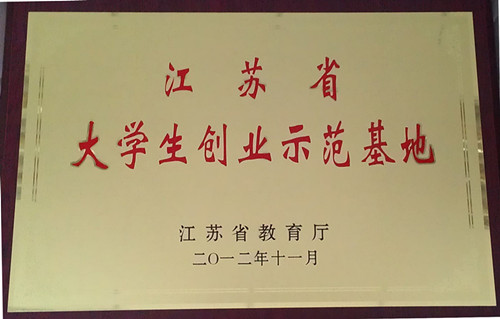 江苏省
大学生创业示范基地
江苏省教育厅
二〇一二年十一月